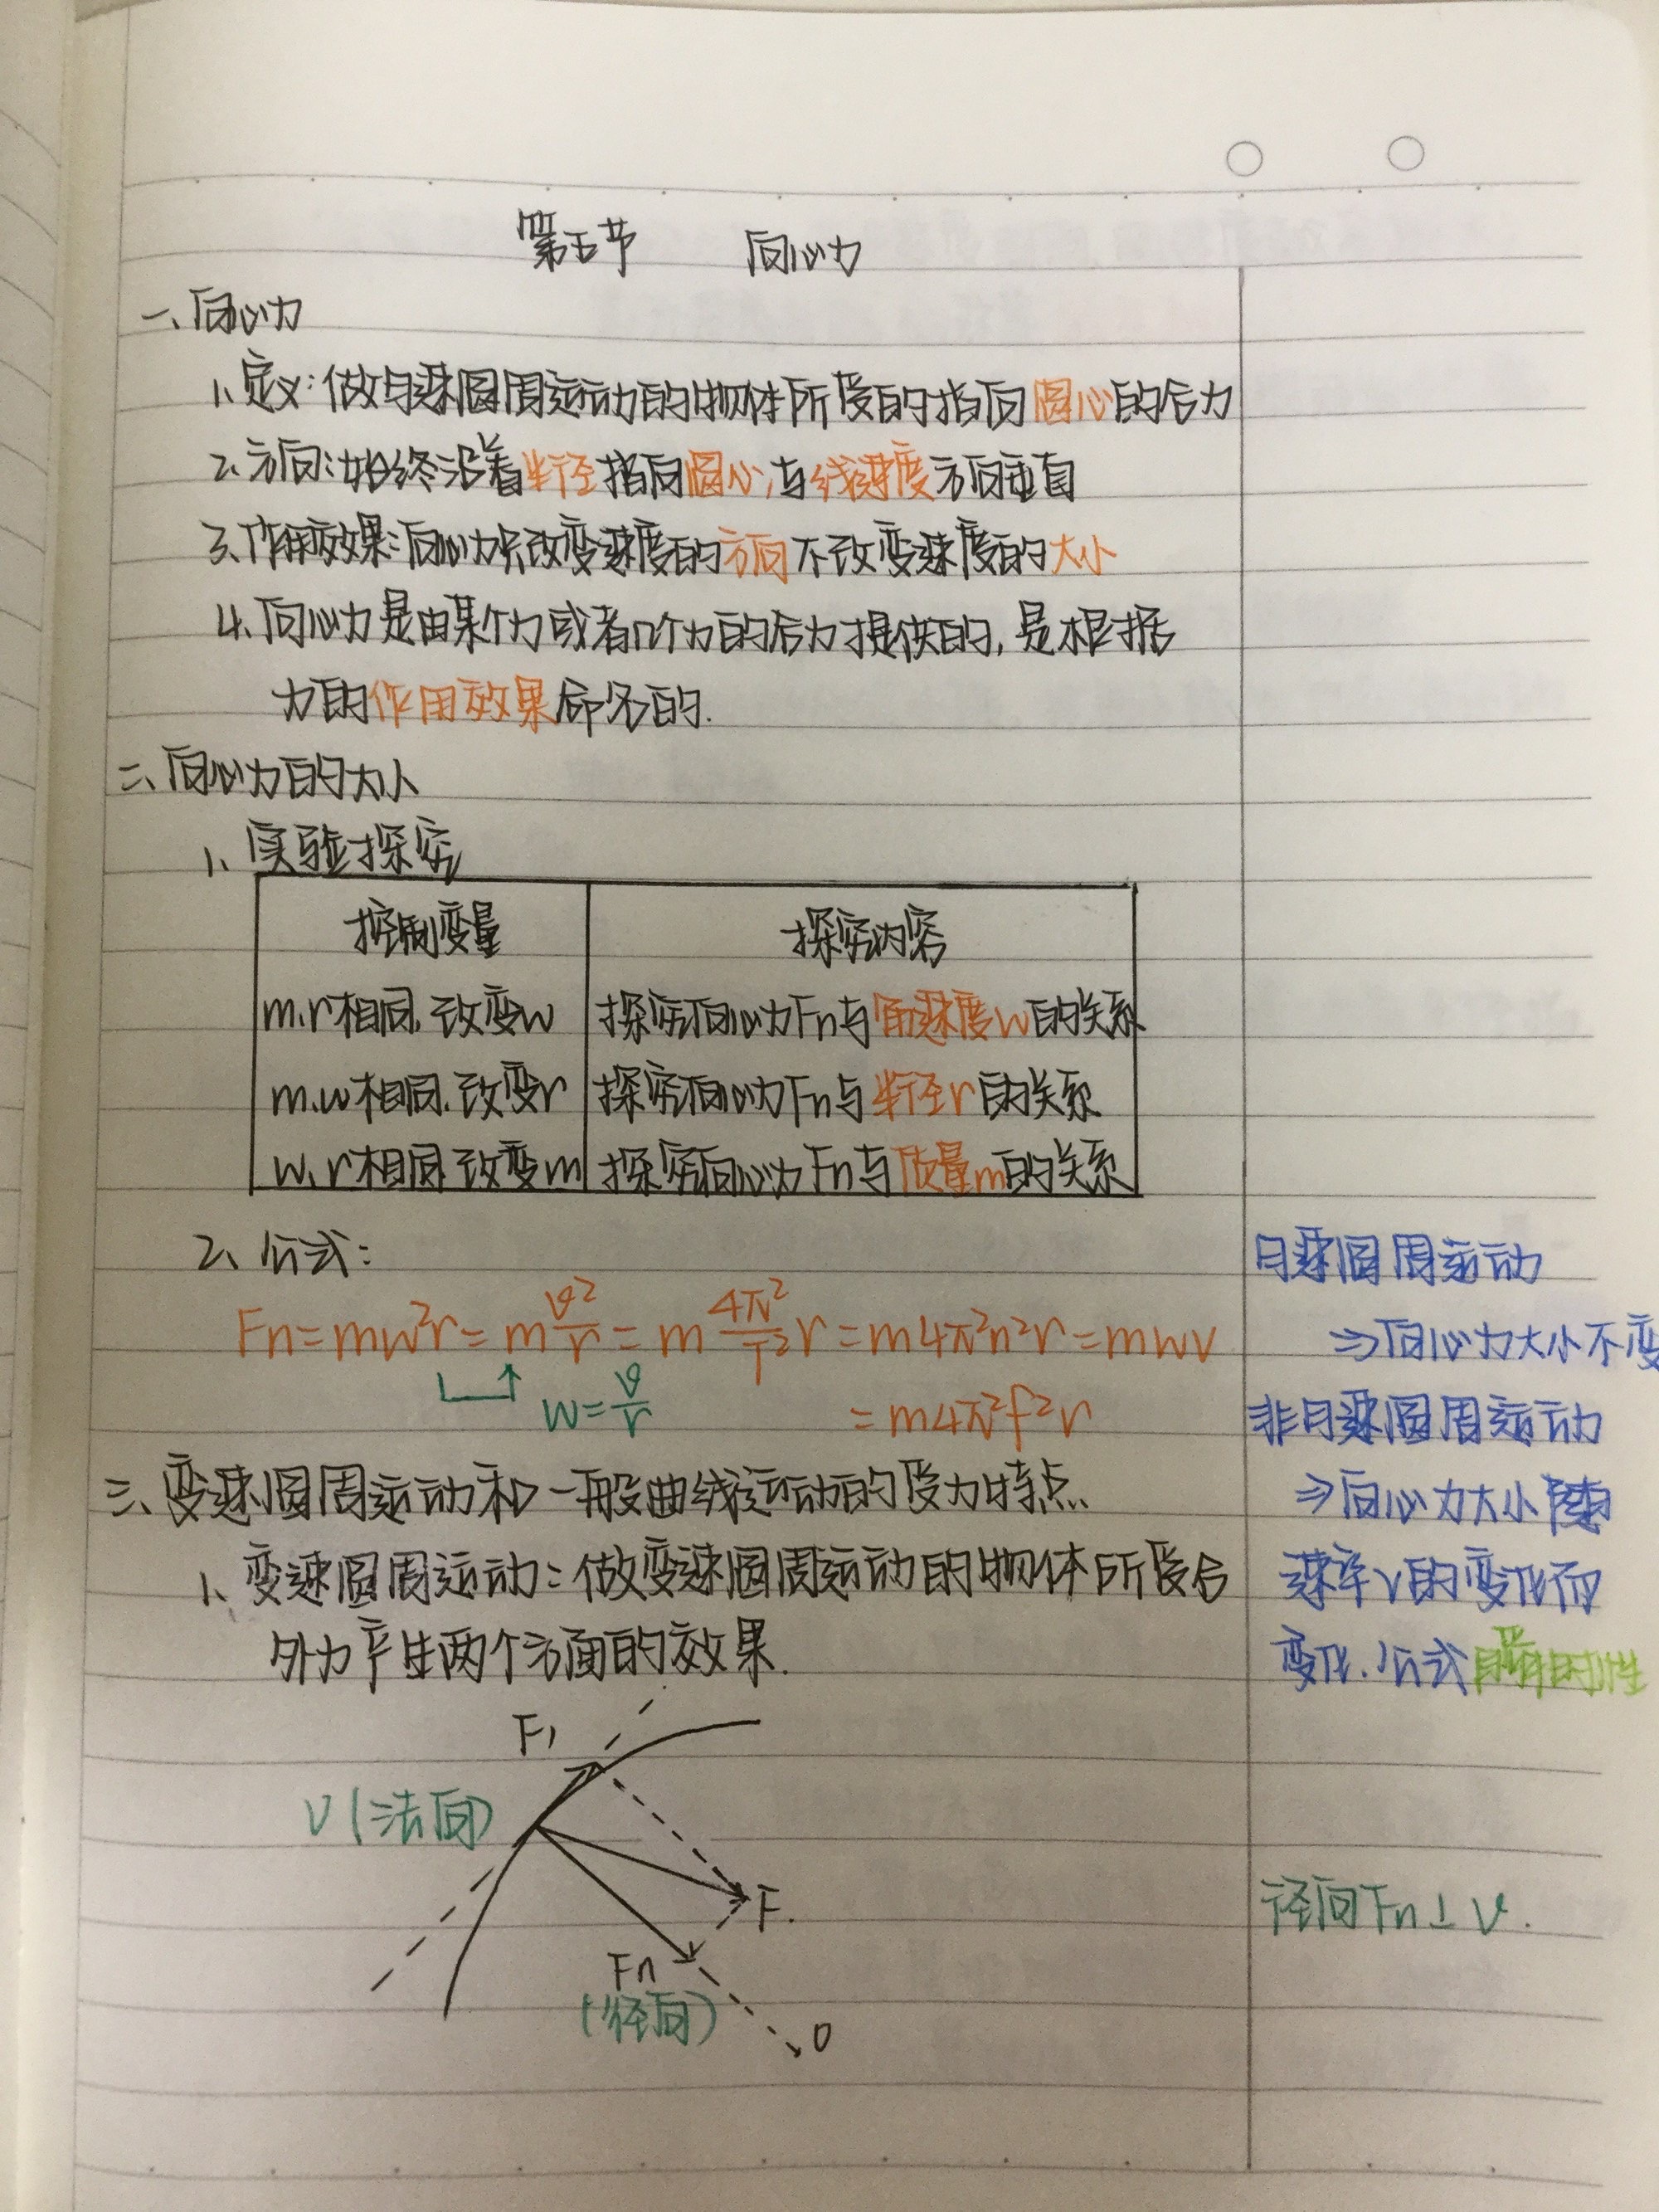 第五节 向心力
一、向心力
1、定义：做匀速圆周运动的物体所受的指向圆心的合力
2、方向：始终沿着半径指向圆心，与线速度方向垂直
3、作用效果：向心力只改变速度的方向不改变速度的大小
4、向心力是由某个力或者几个力的合力提供的，是根据
力的作用效果命名的.
二、向心力的大小
1、实验探究
控制变量 探究内容
m、r相同，改变w 探究向心力Fn与角速度w的关系
m、w相同，改变r 探究向心力Fn与半径r的关系
w、r相同，改变m 探究向心力Fn与质量m的关系
2、公式：
Fn=mw²r=m v²/r=m 4π²/T² r=m4π²n²r=mwv
w=v/r =m4π²f²r
匀速圆周运动
⇒向心力大小不变
非匀速圆周运动
⇒向心力大小随着
速率v的变化而
变化.公式瞬时性
三、变速圆周运动和一般曲线运动的受力特点.
1、变速圆周运动：做变速圆周运动的物体所受合
外力产生两个方面的效果.
F₁
V(法向)
F.
Fn
(径向)
O
径向Fn⊥v.